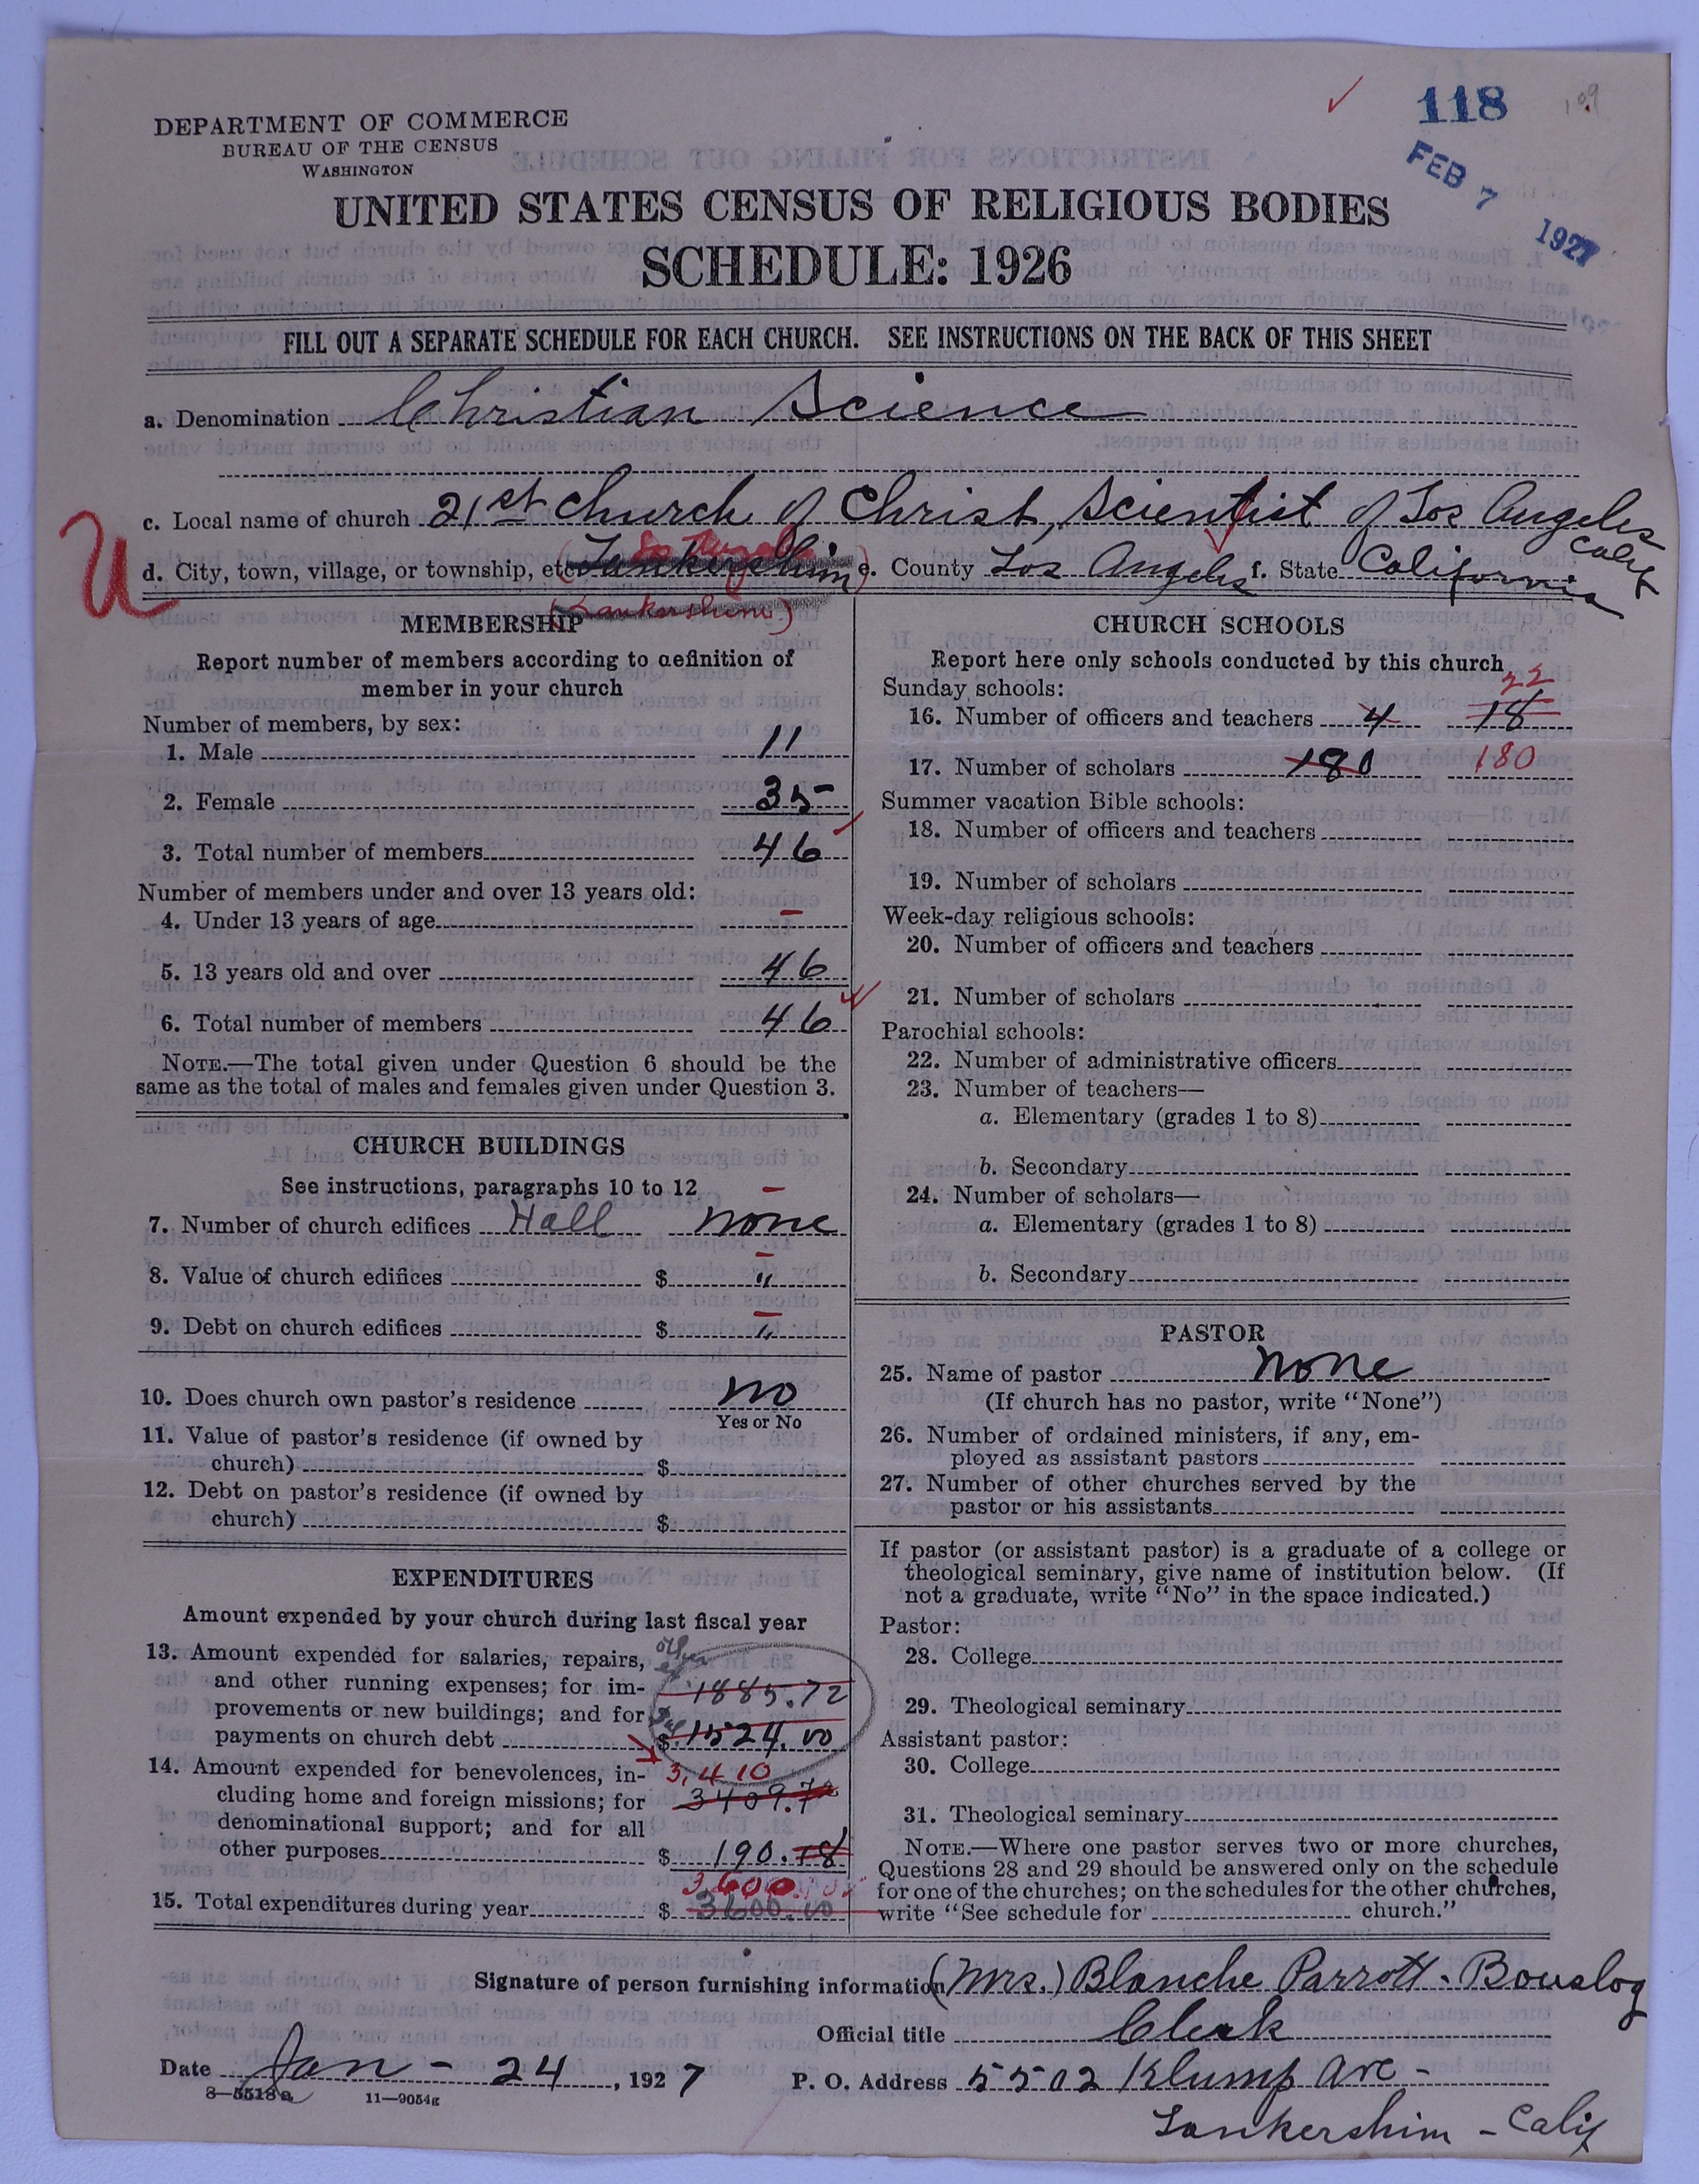 118
109
FEB 7 1927
DEPARTMENT OF COMMERCE
BUREAU OF THE CENSUS
WASHINGTON
UNITED STATES CENSUS OF RELIGIOUS BODIES
SCHEDULE: 1926
FILL OUT A SEPARATE SCHEDULE FOR EACH CHURCH. SEE INSTRUCTIONS ON THE BACK OF THIS SHEET
a. Denomination Christian Science
c. Local name of church 21st Church of Christ, Scientist of Los Angeles Calif
U
d. City, town, village, or township, etc. (Lankershim) e. County Los Angeles f. State California
(Lankershim)
MEMBERSHIP
Report number of members according to definition of
member in your church
Number of members, by sex:
1. Male 11
2. Female 35
3. Total number of members 46
Number of members under and over 13 years old:
4. Under 13 years of age –
5. 13 years old and over 46
6. Total number of members 46
NOTE.—The total given under Question 6 should be the
same as the total of males and females given under Question 3.
CHURCH BUILDINGS
See instructions, paragraphs 10 to 12
7. Number of church edifices Hall none
8. Value of church edifices $ "
9. Debt on church edifices $ "
10. Does church own pastor's residence no
Yes or No
11. Value of pastor's residence (if owned by
church) $
12. Debt on pastor's residence (if owned by
church) $
EXPENDITURES
Amount expended by your church during last fiscal year
13. Amount expended for salaries, repairs, other
and other running expenses; for im- 1885.72
provements or new buildings; and for
payments on church debt $ 1524.00
14. Amount expended for benevolences, in- 3,410
cluding home and foreign missions; for 3409.72
denominational support; and for all
other purposes $ 190.18
3,600
15. Total expenditures during year $ 3600.00
CHURCH SCHOOLS
Report here only schools conducted by this church
Sunday schools: 22
16. Number of officers and teachers 4 18
17. Number of scholars 180 180
Summer vacation Bible schools:
18. Number of officers and teachers
19. Number of scholars
Week-day religious schools:
20. Number of officers and teachers
21. Number of scholars
Parochial schools:
22. Number of administrative officers
23. Number of teachers—
a. Elementary (grades 1 to 8)
b. Secondary
24. Number of scholars—
a. Elementary (grades 1 to 8)
b. Secondary
PASTOR
25. Name of pastor none
(If church has no pastor, write "None")
26. Number of ordained ministers, if any, em-
ployed as assistant pastors
27. Number of other churches served by the
pastor or his assistants
If pastor (or assistant pastor) is a graduate of a college or
theological seminary, give name of institution below. (If
not a graduate, write "No" in the space indicated.)
Pastor:
28. College
29. Theological seminary
Assistant pastor:
30. College
31. Theological seminary
NOTE.—Where one pastor serves two or more churches,
Questions 28 and 29 should be answered only on the schedule
for one of the churches; on the schedules for the other churches,
write "See schedule for church."
Signature of person furnishing information (Mrs.) Blanche Parrott-Bouslog
Official title Clerk
Date Jan - 24, 1927
P. O. Address 5502 Klump Ave -
Lankershim - Calif
8—5518a 11—9054g